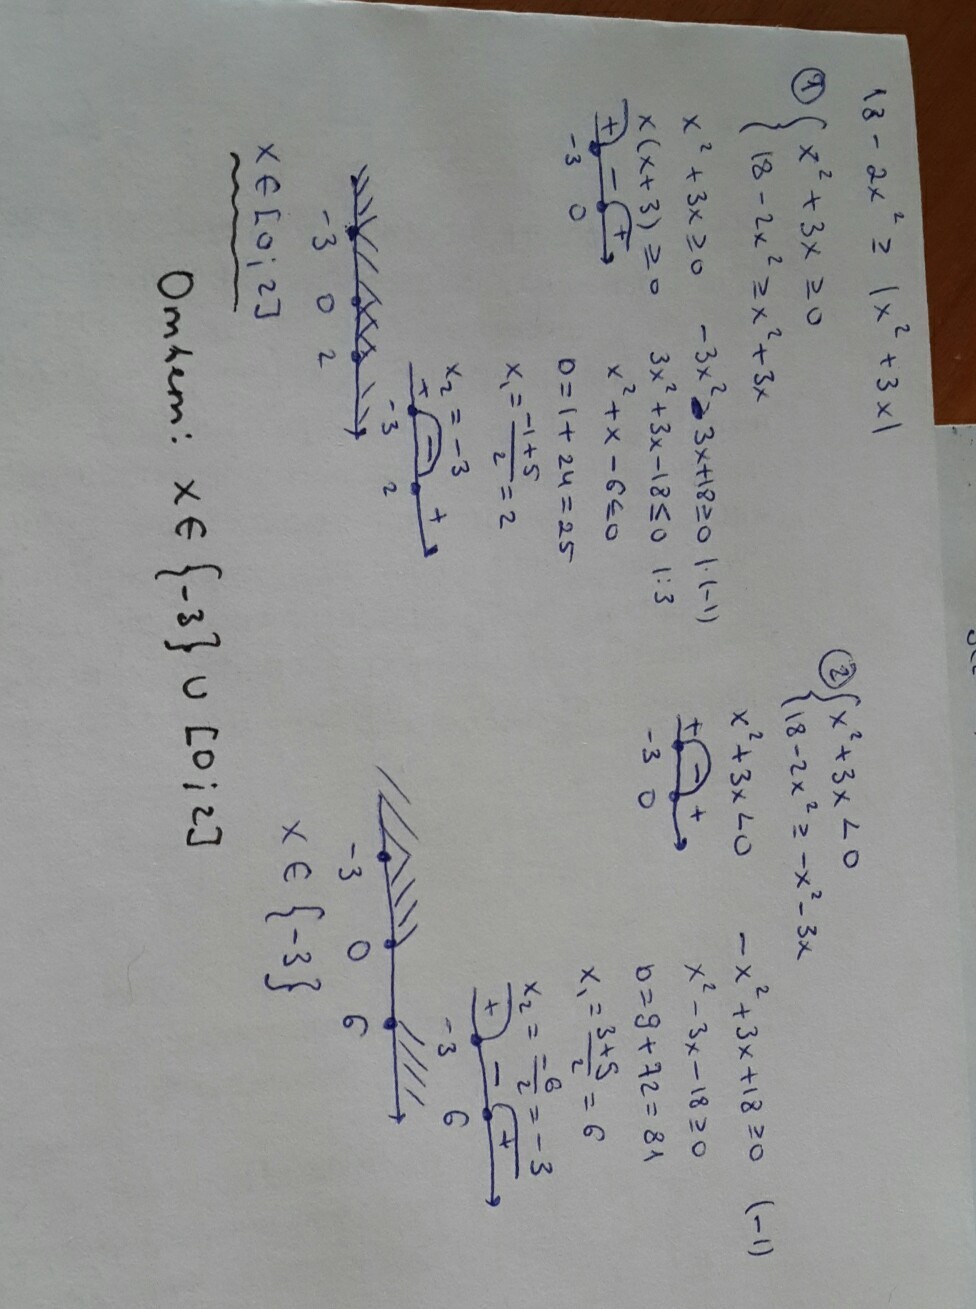 18 - 2x² ≥ |x² + 3x|
① { x² + 3x ≥ 0
18 - 2x² ≥ x² + 3x
x² + 3x ≥ 0
x(x+3) ≥ 0
+ - +
-3 0
-3x² - 3x+18 ≥ 0 |·(-1)
3x² + 3x - 18 ≤ 0 |:3
x² + x - 6 ≤ 0
D = 1 + 24 = 25
x₁ = (-1+5)/2 = 2
x₂ = -3
+ - +
-3 2
-3 0 2
x ∈ [0; 2]
② { x² + 3x < 0
18 - 2x² ≥ -x² - 3x
x² + 3x < 0
+ - +
-3 0
-x² + 3x + 18 ≥ 0 (-1)
x² - 3x - 18 ≥ 0
D = 9 + 72 = 81
x₁ = (3+5)/2 = 6
x₂ = -6/2 = -3
+ - +
-3 6
-3 0 6
x ∈ {-3}
Ответ: x ∈ {-3} ∪ [0; 2]